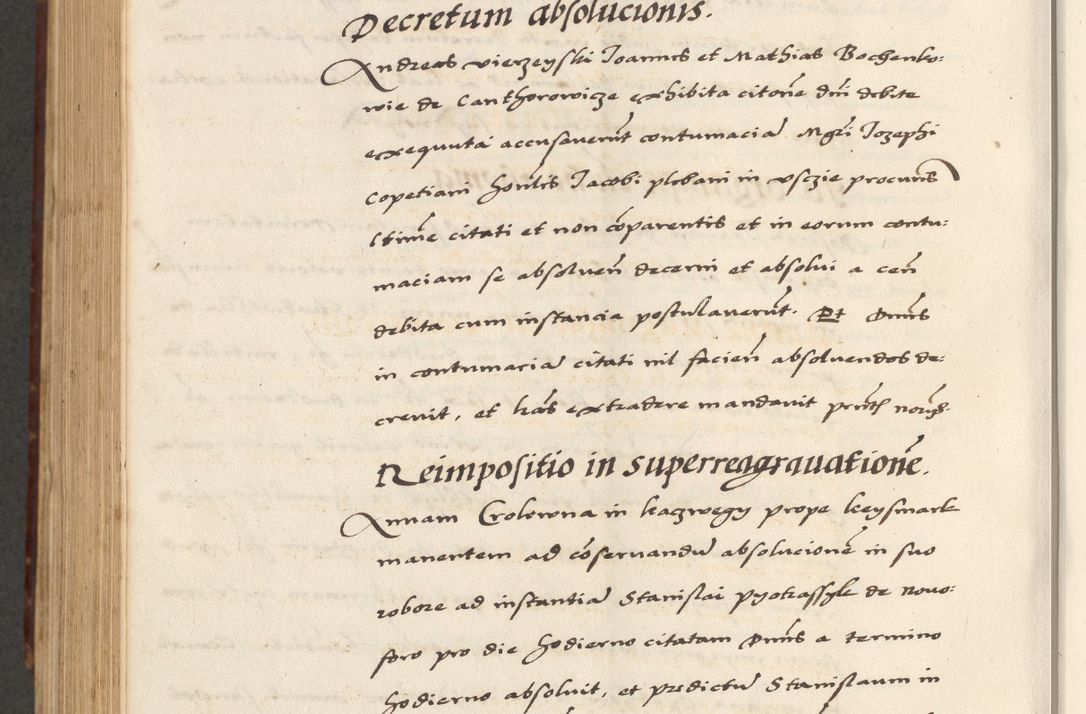 Decretum absolucionis.
Andreas vierzeyski Ioannes et Mathias Bochenko:
wie de Canthorowicze exhibita citoñe dñi debite
exequuta accusaverũt contumaciã Mgri Iozephi
Copetiani honlis Iacobi plebani in vsczie procuris
ltime citati et non cõparentis et in eorum contu:
maciam se absolven decerni et absolui a cen
debita cum instancia postulauerũt. Et Dnus
in contumaciã citati nil facien absoluendos de:
creuit, et hãs extradere mandauit pntℏ noris.
Reimpositio in superreagrauationẽ.
Annam Crolowna in kaczwegy prope keysmark
manentem ad cõseruandũ absolucionẽ in suo
robore ad instantiã Stanislai pyotrassyk de nouo:
foro pro die hodierno citatam Dnus a termino
hodierno absoluit, et predictũ Stanislaum in